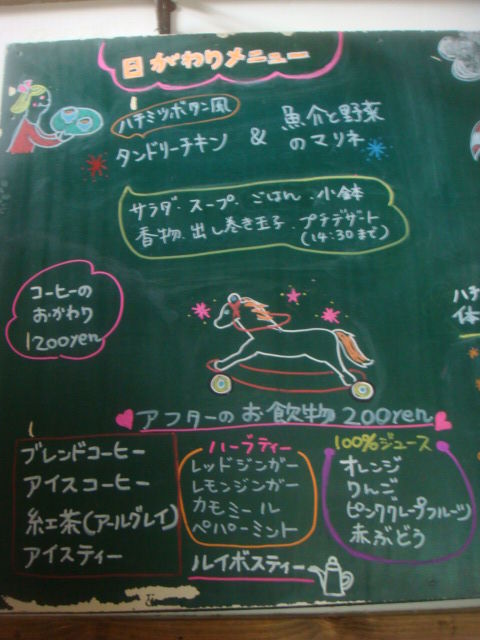 日がわりメニュー
ハチミツボタン風
タンドリーチキン & 魚介と野菜
のマリネ
サラダ・スープ・ごはん・小鉢
香物・出し巻き玉子・プチデザート
(14:30まで)
コーヒーの
おかわり
200yen
アフターのお飲物 200yen
ブレンドコーヒー
アイスコーヒー
紅茶(アールグレイ)
アイスティー
ハーブティー
レッドジンガー
レモンジンガー
カモミール
ペパーミント
ルイボスティー
100%ジュース
オレンジ
りんご
ピンクグレープフルーツ
赤ぶどう
ハチ
体